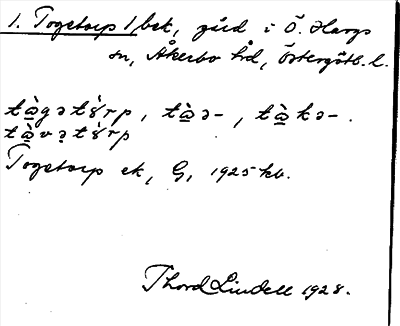 1. Togetorp 1/bek, gård i Ö. Hargs
sn, Åkerbo hd, Östergötl. l.
tàgətɤ́rp, tàə-, tàkə-.
tàvətɤ́rp
Togetorp ek, G, 1925 kb.
Thord Lindell 1928.